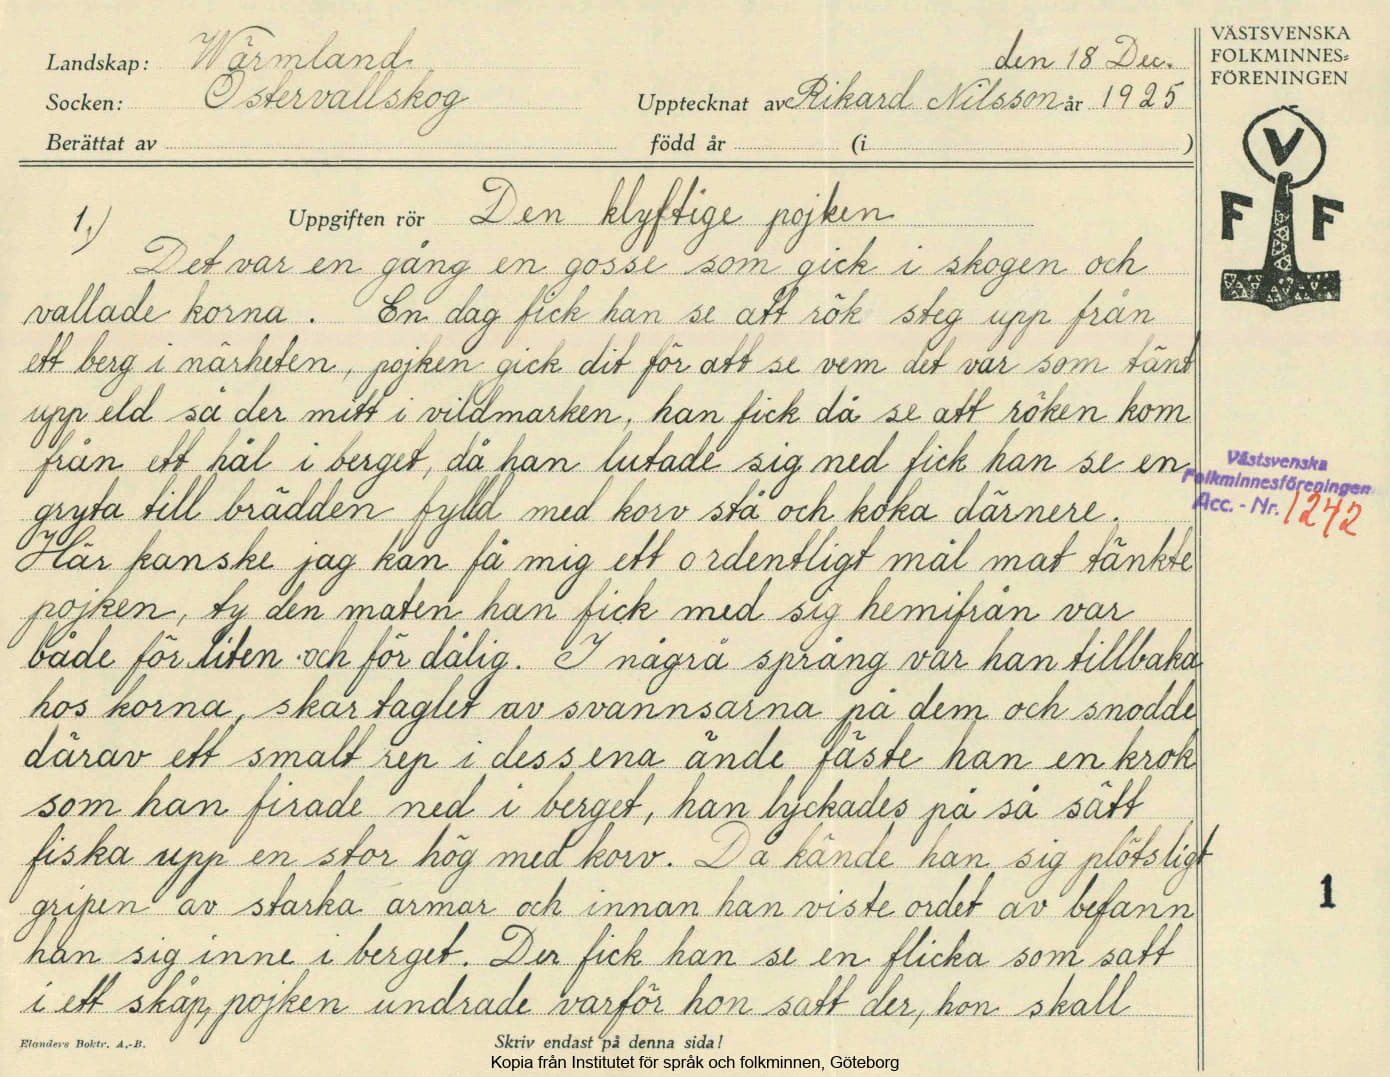 Landskap: Wärmland. den 18 Dec.
Socken: Östervallskog Upptecknat av Rikard Nilsson år 1925
Berättat av född år (i )
VÄSTSVENSKA
FOLKMINNES=
FÖRENINGEN
V
F F
1,) Uppgiften rör Den klyftige pojken
Det var en gång en gosse som gick i skogen och
vallade korna. En dag fick han se att rök steg upp från
ett berg i närheten, pojken gick dit för att se vem det var som tänt
upp eld så der mitt i vildmarken, han fick då se att röken kom
från ett hål i berget, då han lutade sig ned fick han se en
gryta till brädden fylld med korv stå och koka därnere.
Här kanske jag kan få mig ett ordentligt mål mat tänkte
pojken, ty den maten han fick med sig hemifrån var
både för liten och för dålig. I några språng var han tillbaka
hos korna, skar taglet av svannsarna på dem och snodde
därav ett smalt rep i dess ena ände fäste han en krok
som han firade ned i berget, han lyckades på så sätt
fiska upp en stor hög med korv. Då kände han sig plötsligt
gripen av starka armar och innan han viste ordet av befann
han sig inne i berget. Der fick han se en flicka som satt
i ett skåp, pojken undrade varför hon satt der, hon skall
Västsvenska
Folkminnesföreningen
Acc. - Nr. 1242
1
Elanders Boktr. A.-B. Skriv endast på denna sida!
Kopia från Institutet för språk och folkminnen, Göteborg